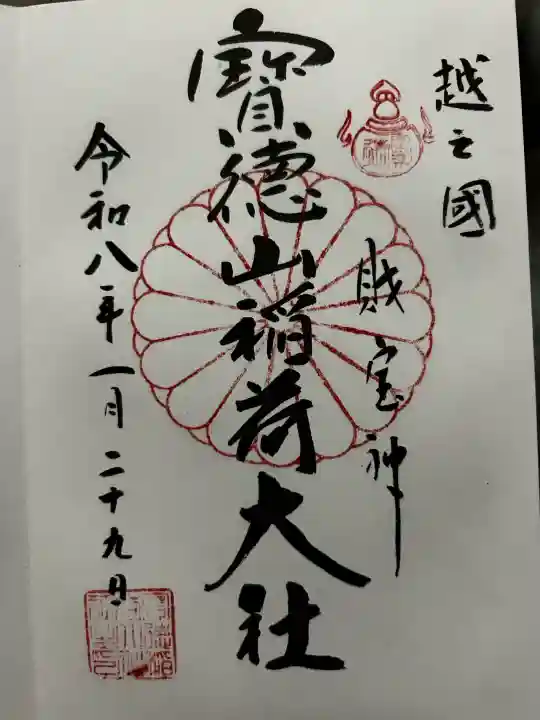 越之國
財宝神
寶德山稲荷大社
令和八年一月二十九日